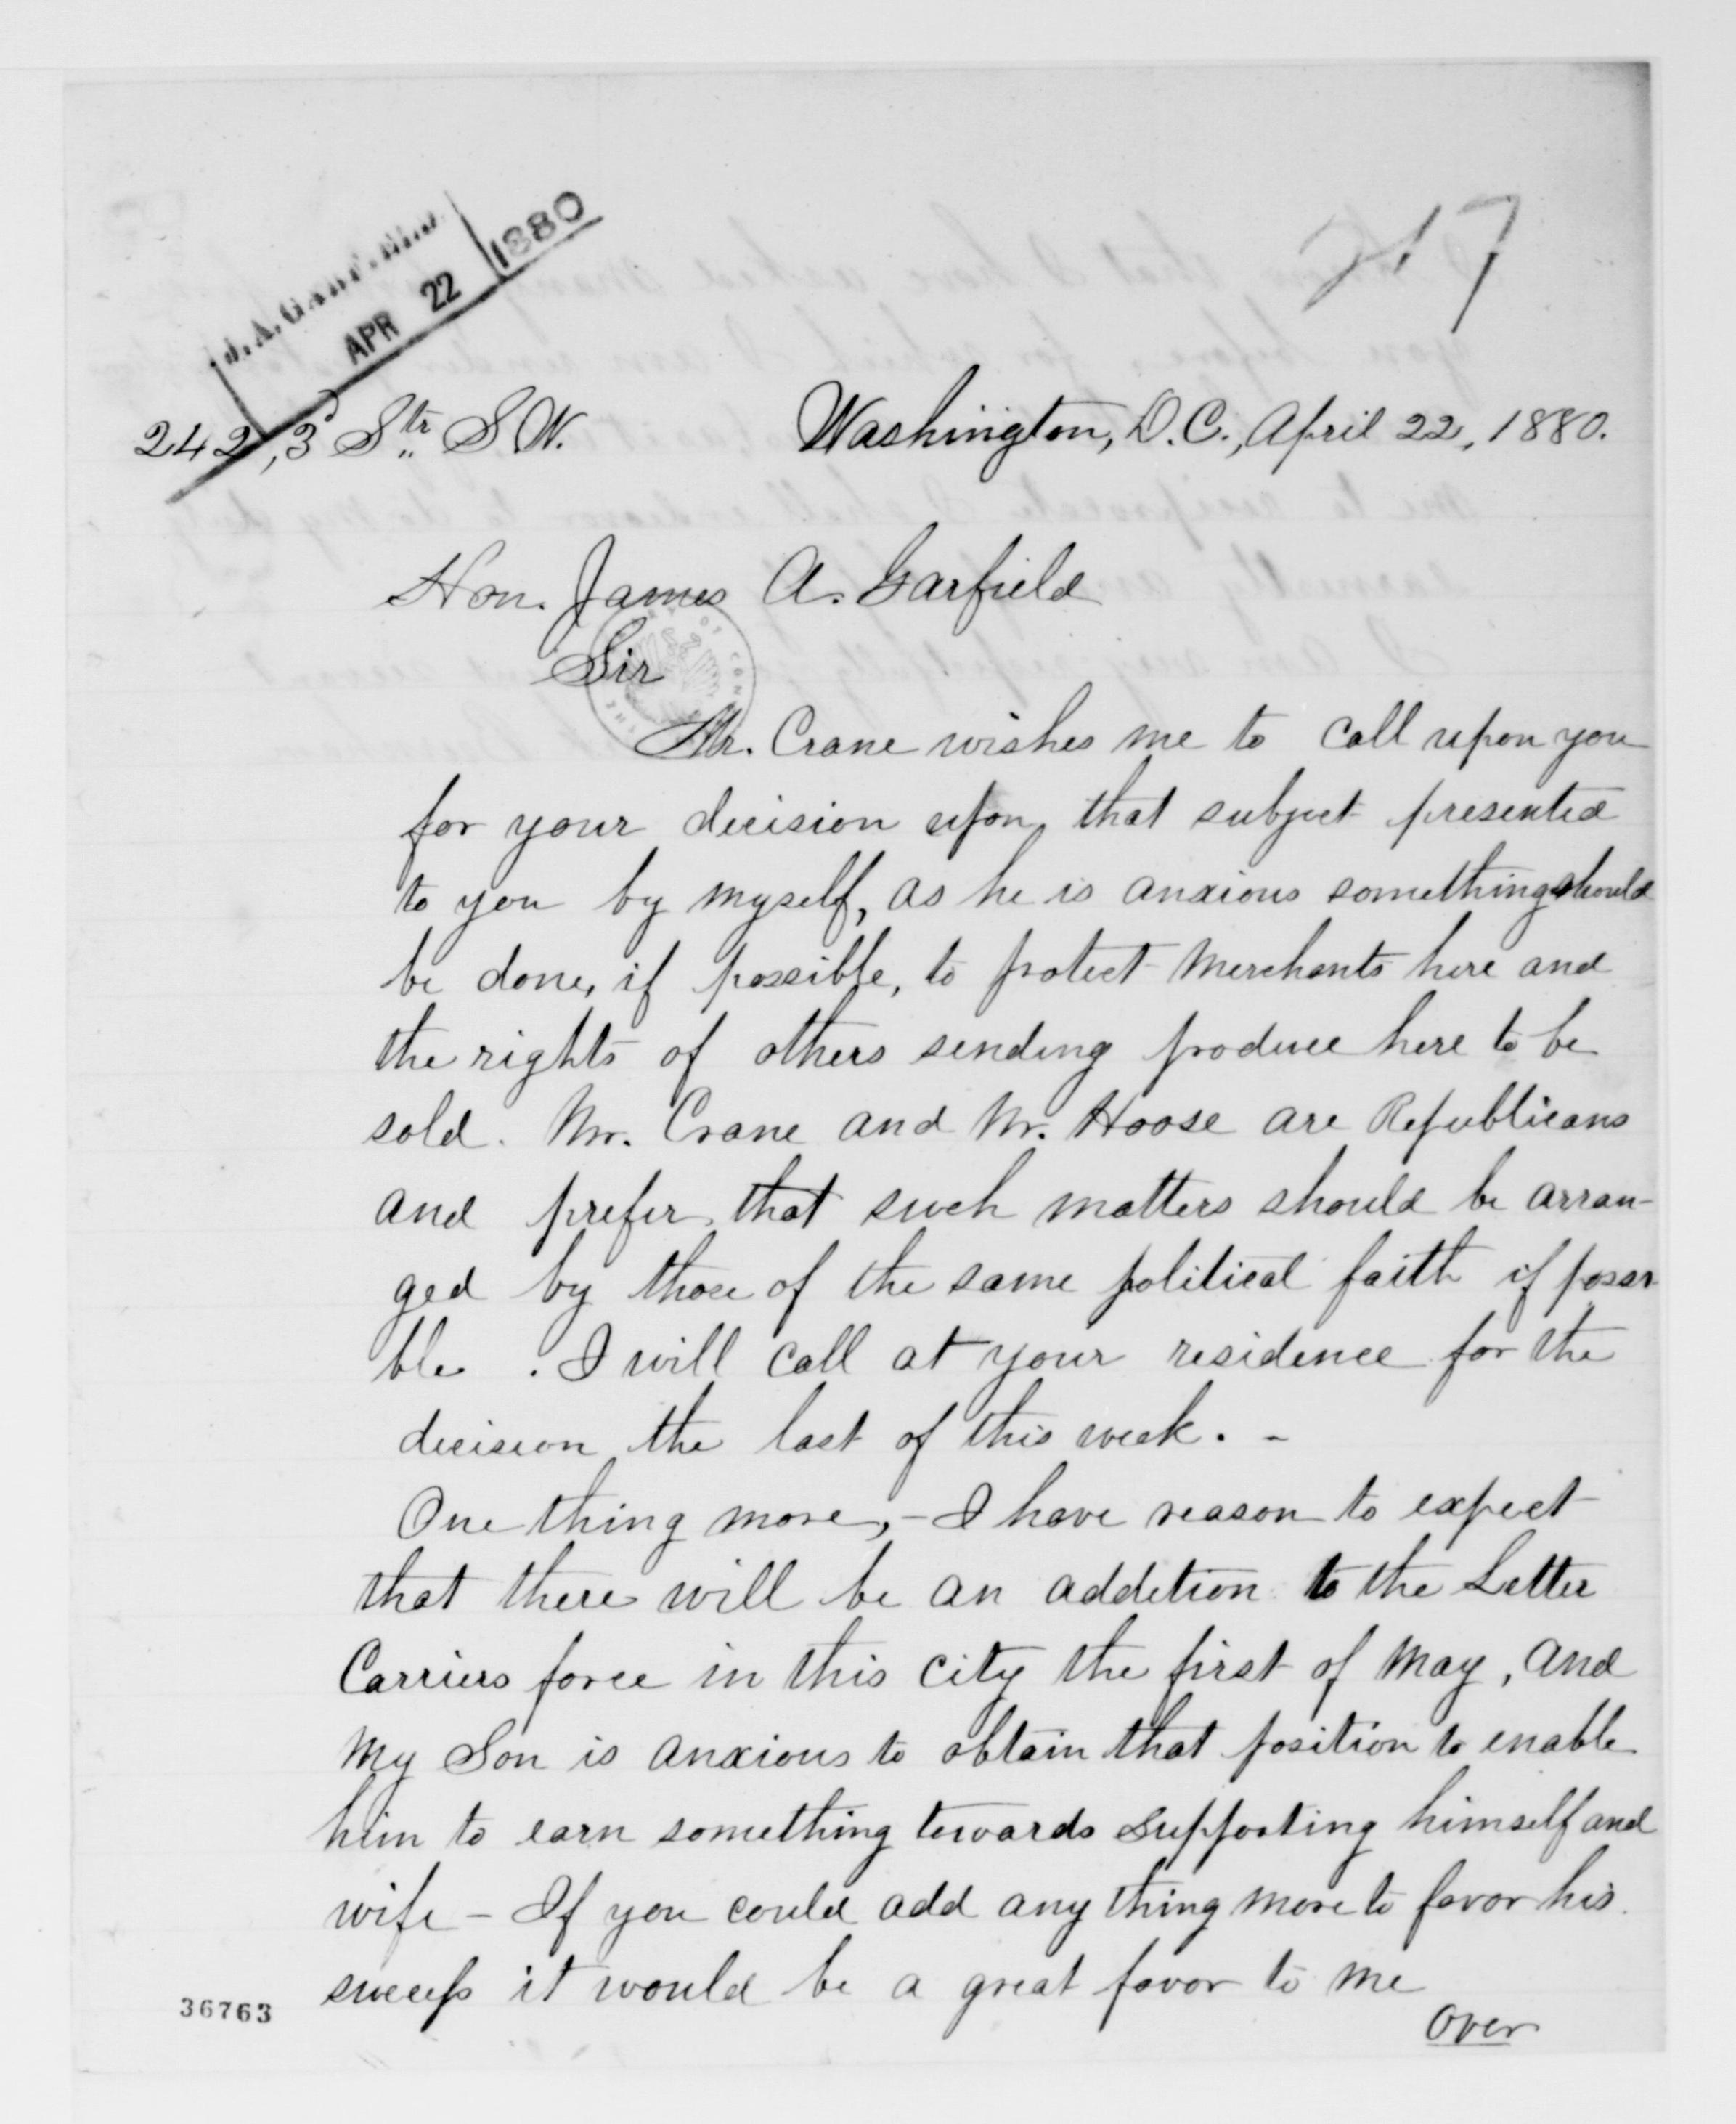 J. A. GARFIELD.
APR 22 1880
217
242, 3 Str. S.W. Washington, D.C., April 22, 1880.
Hon. James A. Garfield
Sir
Mr. Crane wishes me to call upon you
for your decision upon that subject presented
to you by myself, as he is anxious something should
be done, if possible, to protect merchants here and
the rights of others sending produce here to be
sold. Mr. Crane and Mr. Hoose are Republicans
and prefer that such matters should be arran-
ged by those of the same political faith if possi-
ble. I will call at your residence for the
decision the last of this week. -
One thing more, - I have reason to expect
that there will be an addetion to the Letter
Carriers force in this city the first of May, and
my Son is anxious to obtain that position to enable
him to earn something towards supporting himself and
wife - If you could add any thing more to favor his
success it would be a great favor to me
over
36763